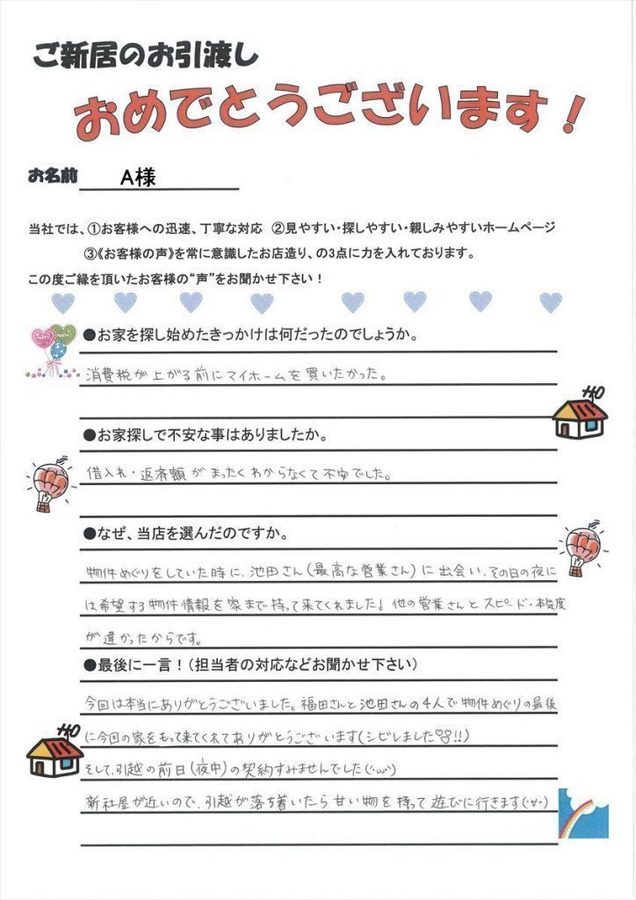 ご新居のお引渡し
おめでとうございます!
お名前 A様
当社では、①お客様への迅速、丁寧な対応 ②見やすい・探しやすい・親しみやすいホームページ
③《お客様の声》を常に意識したお店造り、の3点に力を入れております。
この度ご縁を頂いたお客様の“声”をお聞かせ下さい!
●お家を探し始めたきっかけは何だったのでしょうか。
消費税が上がる前にマイホームを買いたかった。
●お家探しで不安な事はありましたか。
借入れ・返済額がまったくわからなくて不安でした。
●なぜ、当店を選んだのですか。
物件めぐりをしていた時に、池田さん(最高な営業さん)に出会い、その日の夜に
は希望する物件情報を家まで持って来てくれました! 他の営業さんとスピード・本気度
が違かったからです。
●最後に一言!(担当者の対応などお聞かせ下さい)
今回は本当にありがとうございました。福田さんと池田さんの4人で物件めぐりの最後
に今回の家をもって来てくれてありがとうございます(シビレました!!)
そして、引越の前日(夜中)の契約すみませんでした(・ω・)
新社屋が近いので、引越が落ち着いたら甘い物を持って遊びに行きます(・∀・)